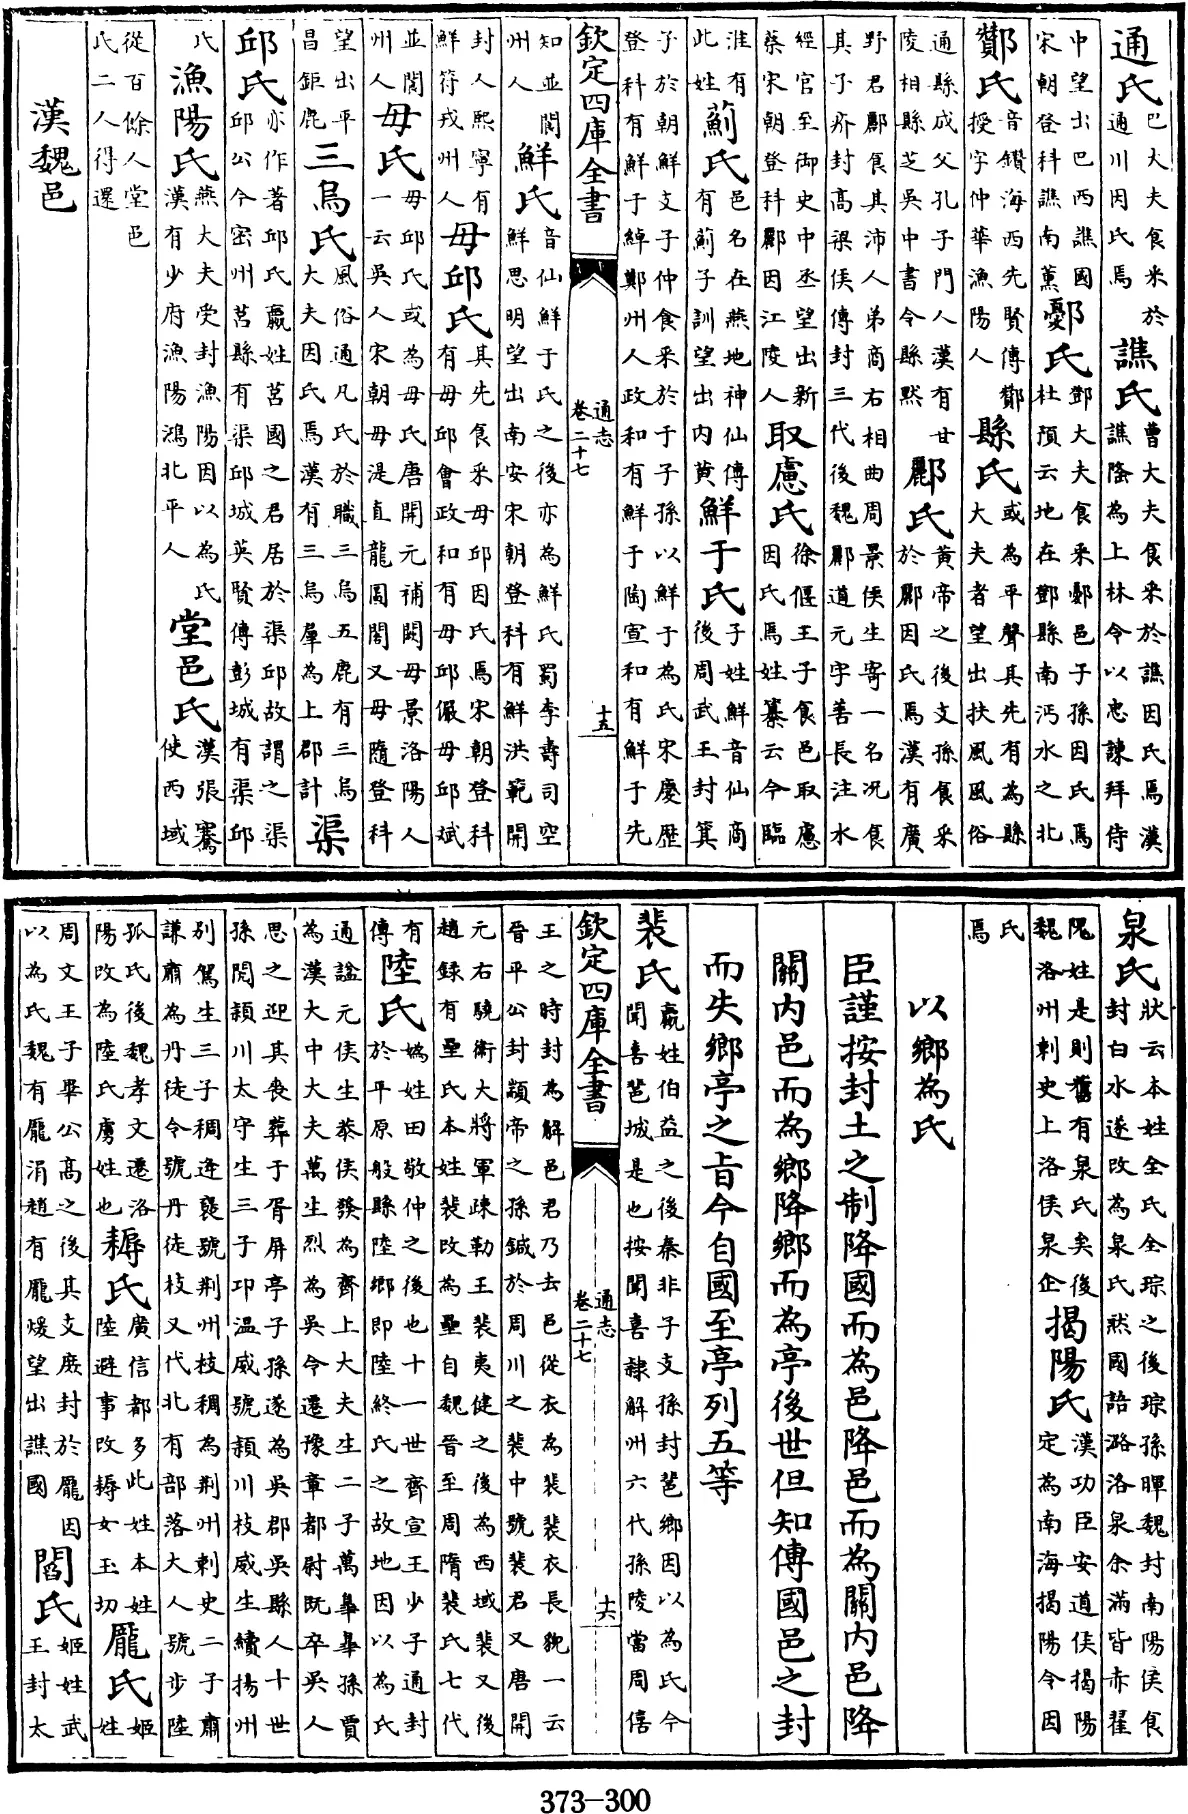 通氏巴大夫食米於通川因氏焉譙氏曹大夫食采於譙因氏焉漢譙隆為上林令以忠諫拜侍
中望出巴西譙國宋朝登科譙南薰鄾氏鄧大夫食采鄾邑子孫因氏焉杜預云地在鄧縣南沔水之北
酇氏音鑽海西先賢傳酇授字仲華漁陽人縣氏或為平聲其先有為縣大夫者望出扶風風俗
通縣成父孔子門人漢有甘陵相縣芝吳中書令縣默酈氏黃帝之後支孫食采於酈因氏焉漢有廣
野君酈食其沛人弟商右相曲周景侯生寄一名况食其子疥封高梁侯傳封三代後魏酈道元字善長注水
經官至御史中丞望出新蔡宋朝登科酈因江陵人取慮氏徐偃王子食邑取慮因氏焉姓纂云今臨
淮有此姓薊氏邑名在燕地神仙傳有薊子訓望出内黄鮮于氏子姓鮮音仙商後周武王封箕
子於朝鮮支子仲食采於于子孫以鮮于為氏宋慶歷登科有鮮于綽鄭州人政和有鮮于陶宣和有鮮于先
欽定四庫全書 通志卷二十七 十五
知並閬州人鮮氏音仙鮮于氏之後亦為鮮氏蜀李壽司空鮮思明望出南安宋朝登科有鮮洪範開
封人熙寧有鮮符戎州人毋邱氏其先食采毋邱因氏焉宋朝登科有毋邱會政和有毋邱儼毋邱斌
並閬州人毋氏毋邱氏或為毋氏唐開元補闕毋景洛陽人一云吳人宋朝毋湜直龍圖閣又毋隨登科
望出平昌鉅鹿三烏氏風俗通凡氏於職三烏五鹿有三烏大夫因氏焉漢有三烏羣為上郡計渠
邱氏亦作著邱氏嬴姓莒國之君居於渠邱故謂之渠邱公今密州莒縣有渠邱城英賢傳彭城有渠邱
氏漁陽氏燕大夫受封漁陽因以為氏漢有少府漁陽鴻北平人堂邑氏漢張騫使西域
從百餘人堂邑氏二人得還
漢魏邑
泉氏狀云本姓全氏全琮之後琮孫暉魏封南陽侯食封白水遂改為泉氏然國語潞洛泉余滿皆赤翟
隗姓是則舊有泉氏矣後魏洛州刺史上洛侯泉企揭陽氏漢功臣安道侯揭陽定為南海揭陽令因
氏焉
以鄉為氏
臣謹按封土之制降國而為邑降邑而為關内邑降
關内邑而為鄉降鄉而為亭後世但知傳國邑之封
而失鄉亭之旨今自國至亭列五等
裴氏嬴姓伯益之後秦非子支孫封𨛬鄉因以為氏今聞喜𨛬城是也按聞喜隸解州六代孫陵當周僖
欽定四庫全書 通志卷二十七 十六
王之時封為解邑君乃去邑從衣為裴裴衣長貌一云晉平公封顓帝之孫鍼於周川之裴中號裴君又唐開
元右驍衛大將軍疎勒王裴夷健之後為西域裴又後趙録有壘氏本姓裴改為壘自魏晉至周隋裴氏七代
有傳陸氏嬀姓田敬仲之後也十一世齊宣王少子通封於平原般縣陸鄉即陸終氏之故地因以為氏
通諡元侯生恭侯發為齊上大夫生二子萬臯臯孫賈為漢大中大夫萬生烈為吳令遷豫章都尉既卒吳人
思之迎其喪葬于胥屏亭子孫遂為吳郡吳縣人十世孫閎潁川太守生三子卭温威號潁川枝威生續揚州
别駕生三子稠逄襃號荆州枝稠為荆州刺史二子肅謙肅為丹徒令號丹徒枝又代北有部落大人號步陸
孤氏後魏孝文遷洛陽改為陸氏虜姓也耨氏廣信都多此姓本姓陸避事改耨女玉切龎氏姬姓
周文王子畢公高之後其支庶封於龎因以為氏魏有龎涓趙有龎煖望出譙國閻氏姬姓武王封太
373—300